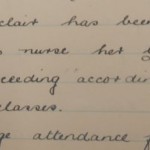 clair has been
nurse her
ceeding accordin
classes.
ge attendance f